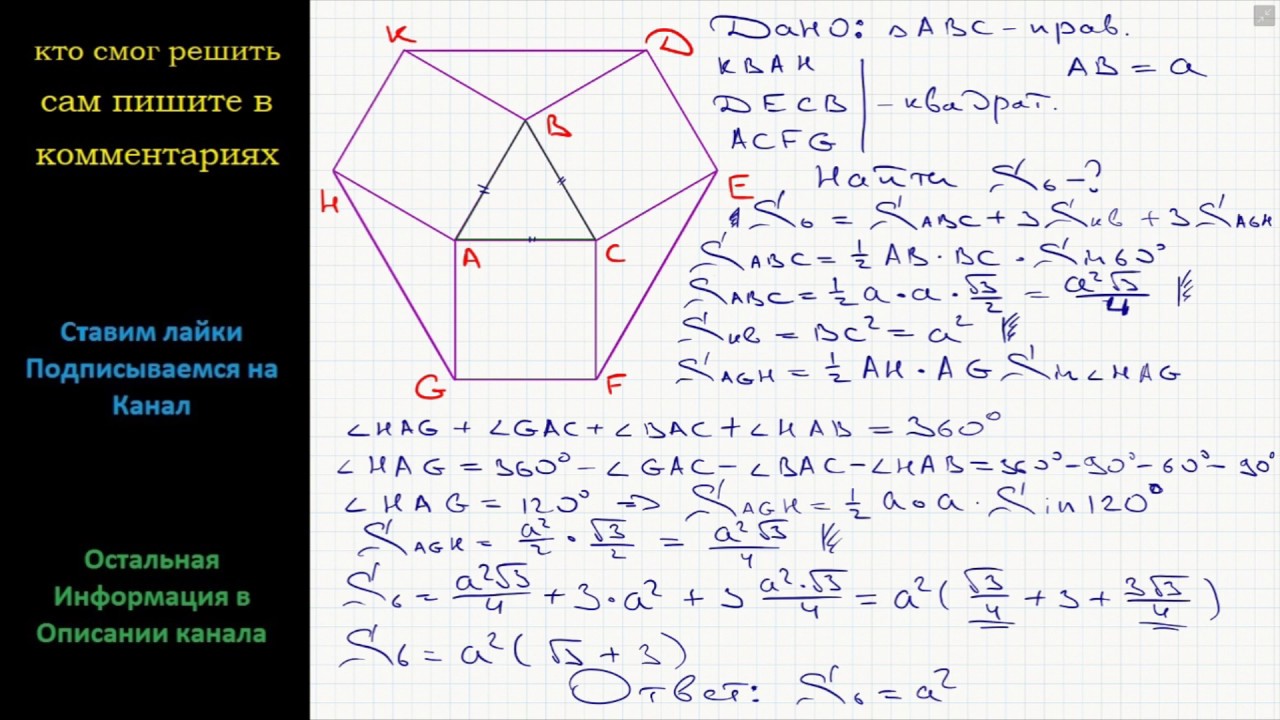 кто смог решить
сам пишите в
комментариях
Ставим лайки
Подписываемся на
Канал
Остальная
Информация в
Описании канала
K
D
B
H
E
A
C
G
F
Дано: △ABC – прав.
KBAH
AB = a
DECB – квадрат.
ACFG
Найти S₆ – ?
S₆ = S ABC + 3 S кв + 3 S AGH
S ABC = 1/2 AB · BC · Sin 60°
S ABC = 1/2 a · a · √3/2 = a²√3/4
S кв = BC² = a²
S AGH = 1/2 AH · AG Sin ∠HAG
∠HAG + ∠GAC + ∠BAC + ∠HAB = 360°
∠HAG = 360° – ∠GAC – ∠BAC – ∠HAB = 360° – 90° – 60° – 90°
∠HAG = 120° => S AGH = 1/2 a · a · Sin 120°
S AGH = a²/2 · √3/2 = a²√3/4
S₆ = a²√3/4 + 3 · a² + 3 a²·√3/4 = a² ( √3/4 + 3 + 3√3/4 )
S₆ = a² ( √3 + 3 )
Ответ: S₆ = a²